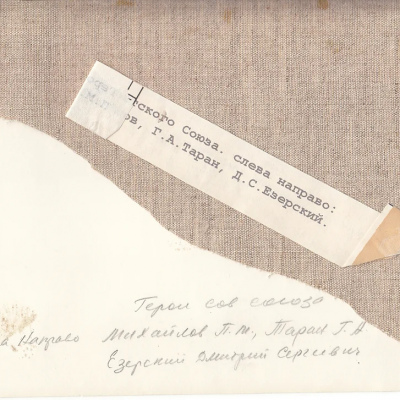 ского Союза. слева направо:
ов, Г.А.Таран, Д.С.Езерский.
Герои сов союза
а Направо Михайлов П.М., Таран Г.А.
Езерский Дмитрий Сергеевич